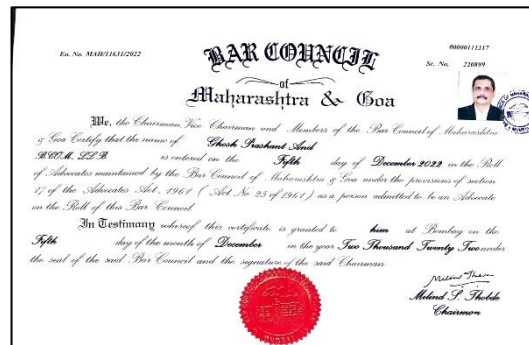 En. No. MAH/11631/2022
00000111317
BAR COUNCIL
Sr. No. 220899
of
Maharashtra & Goa
We, the Chairman, Vice Chairman and Members of the Bar Council of Maharashtra
& Goa Certify that the name of Ghosh Prashant Anil
B.COM., LL.B. is entered on the Fifth day of December 2022 in the Roll
of Advocates maintained by the Bar Council of Maharashtra & Goa under the provisions of section
17 of the Advocates Act, 1961 ( Act No. 25 of 1961 ) as a person admitted to be an Advocate
on the Roll of this Bar Council.
In Testimony whereof this certificate is granted to him at Bombay on the
Fifth day of the month of December in the year Two Thousand Twenty Two under
the seal of the said Bar Council and the signature of the said Chairman.
Milind S. Thobde
Chairman